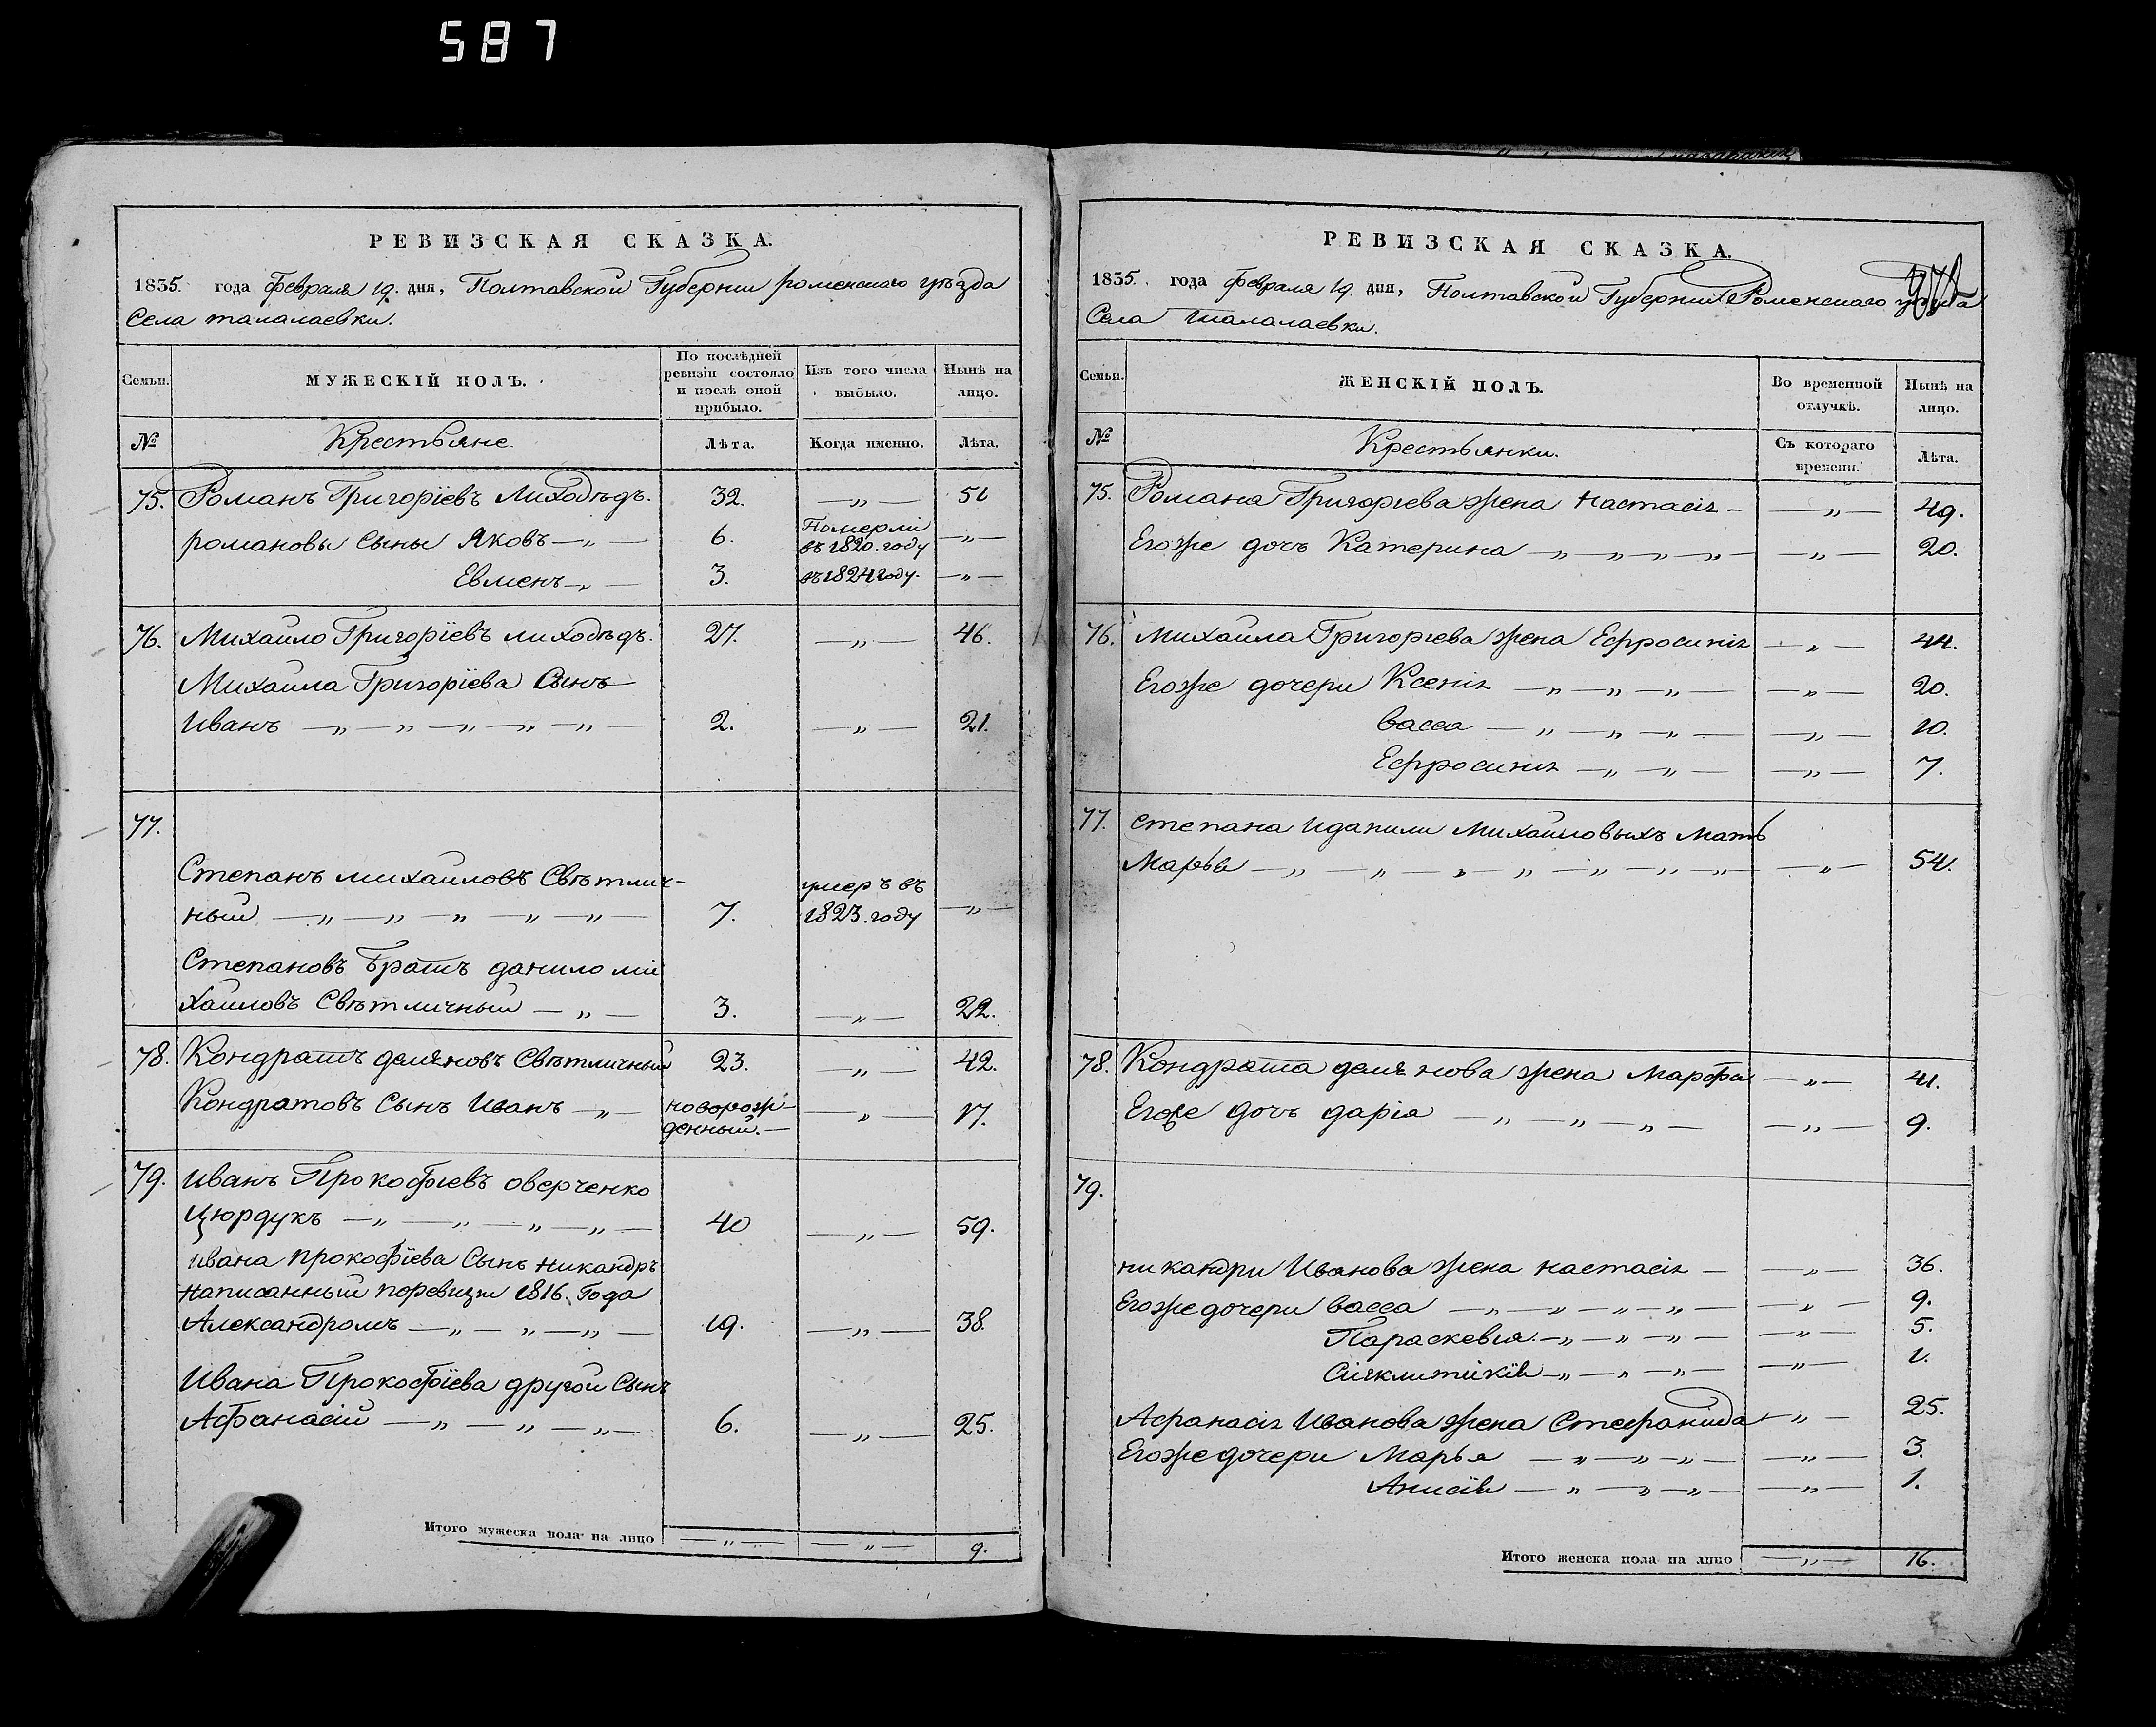 587
РЕВИЗСКАЯ СКАЗКА.
1835. года Февраля 19. дня, Полтавской Губернии роменскаго уѣзда
Села талалаевки.
Семьи.
МУЖЕСКІЙ ПОЛЪ.
По послѣдней ревизіи состояло и послѣ оной прибыло.
Изъ того числа выбыло.
Нынѣ на лицо.
№ Крестьяне. Лѣта. Когда именно. Лѣта.
75. Романъ Григорїевъ Лиходѣдъ. 32. —„— 51
романовы Сыны Яковъ —„— 6. Померли въ 1820. году —„—
Евменъ —„— 3. въ 1824 году. —„—
76. Михайло Григорїевъ лиходѣдъ. 27. —„— 46.
Михайла Григорїева Сынъ
Иванъ —„—„—„—„—„— 2. —„— 21.
77.
Степанъ михайловъ Свѣтлич-
ный —„—„—„—„—„— 7. умеръ въ 1823. году —„—
Степановъ Братъ данило ми
хайловъ Свѣтличный —„— 3. —„— 22.
78. Кондратъ демяновъ Свѣтличный 23. —„— 42.
Кондратовъ Сынъ Иванъ —„— новорож-денный. —„— 17.
79. Иванъ Прокофіевъ оверченко
Цюрдукъ —„—„—„—„— 40 —„— 59.
ивана прокофїева Сынъ никандръ
написанный поревизіи 1816. Года
Александромъ —„—„—„— 19. —„— 38.
Ивана Прокофїева другой Сынъ
Афанасій —„—„—„— 6. —„— 25.
Итого мужеска пола на лицо —„— —„— 9.
РЕВИЗСКАЯ СКАЗКА.
1835. года Февраля 19. дня, Полтавской Губерніи Роменскаго уѣзда
Села талалаевки.
Семьи.
ЖЕНСКІЙ ПОЛЪ.
Во временной отлучкѣ.
Нынѣ на лицо.
№ Крестьянки. Съ котораго времени. Лѣта.
75. Романа Григоріева жена настасія — —„— 49.
Егоже дочь Катерина —„—„—„—„— —„— 20.
76. Михайла Григоріева жена Ефросинія —„— 44.
Егоже дочери Ксенія —„—„—„— —„— 20.
васса —„—„—„— —„— 10.
Ефросинія —„—„— —„— 7.
77. степана иданили михайловыхъ мать
Марья —„—„—„—„—„—„—„— —„— 54.
78. Кондрата демянова жена марфа —„— 41.
Егоже дочь дарія —„—„—„— —„— 9.
79.
никандри Иванова жена настасія — —„— 36.
Егоже дочери васса —„—„—„—„— —„— 9.
Параскевія —„—„—„— —„— 5.
Сигклитикія —„—„—„— —„— 1.
Афанасія Иванова жена Стефанида —„— 25.
Егоже дочери Марья —„—„—„— —„— 3.
Анисія —„—„—„— —„— 1.
Итого женска пола на лицо —„— 16.